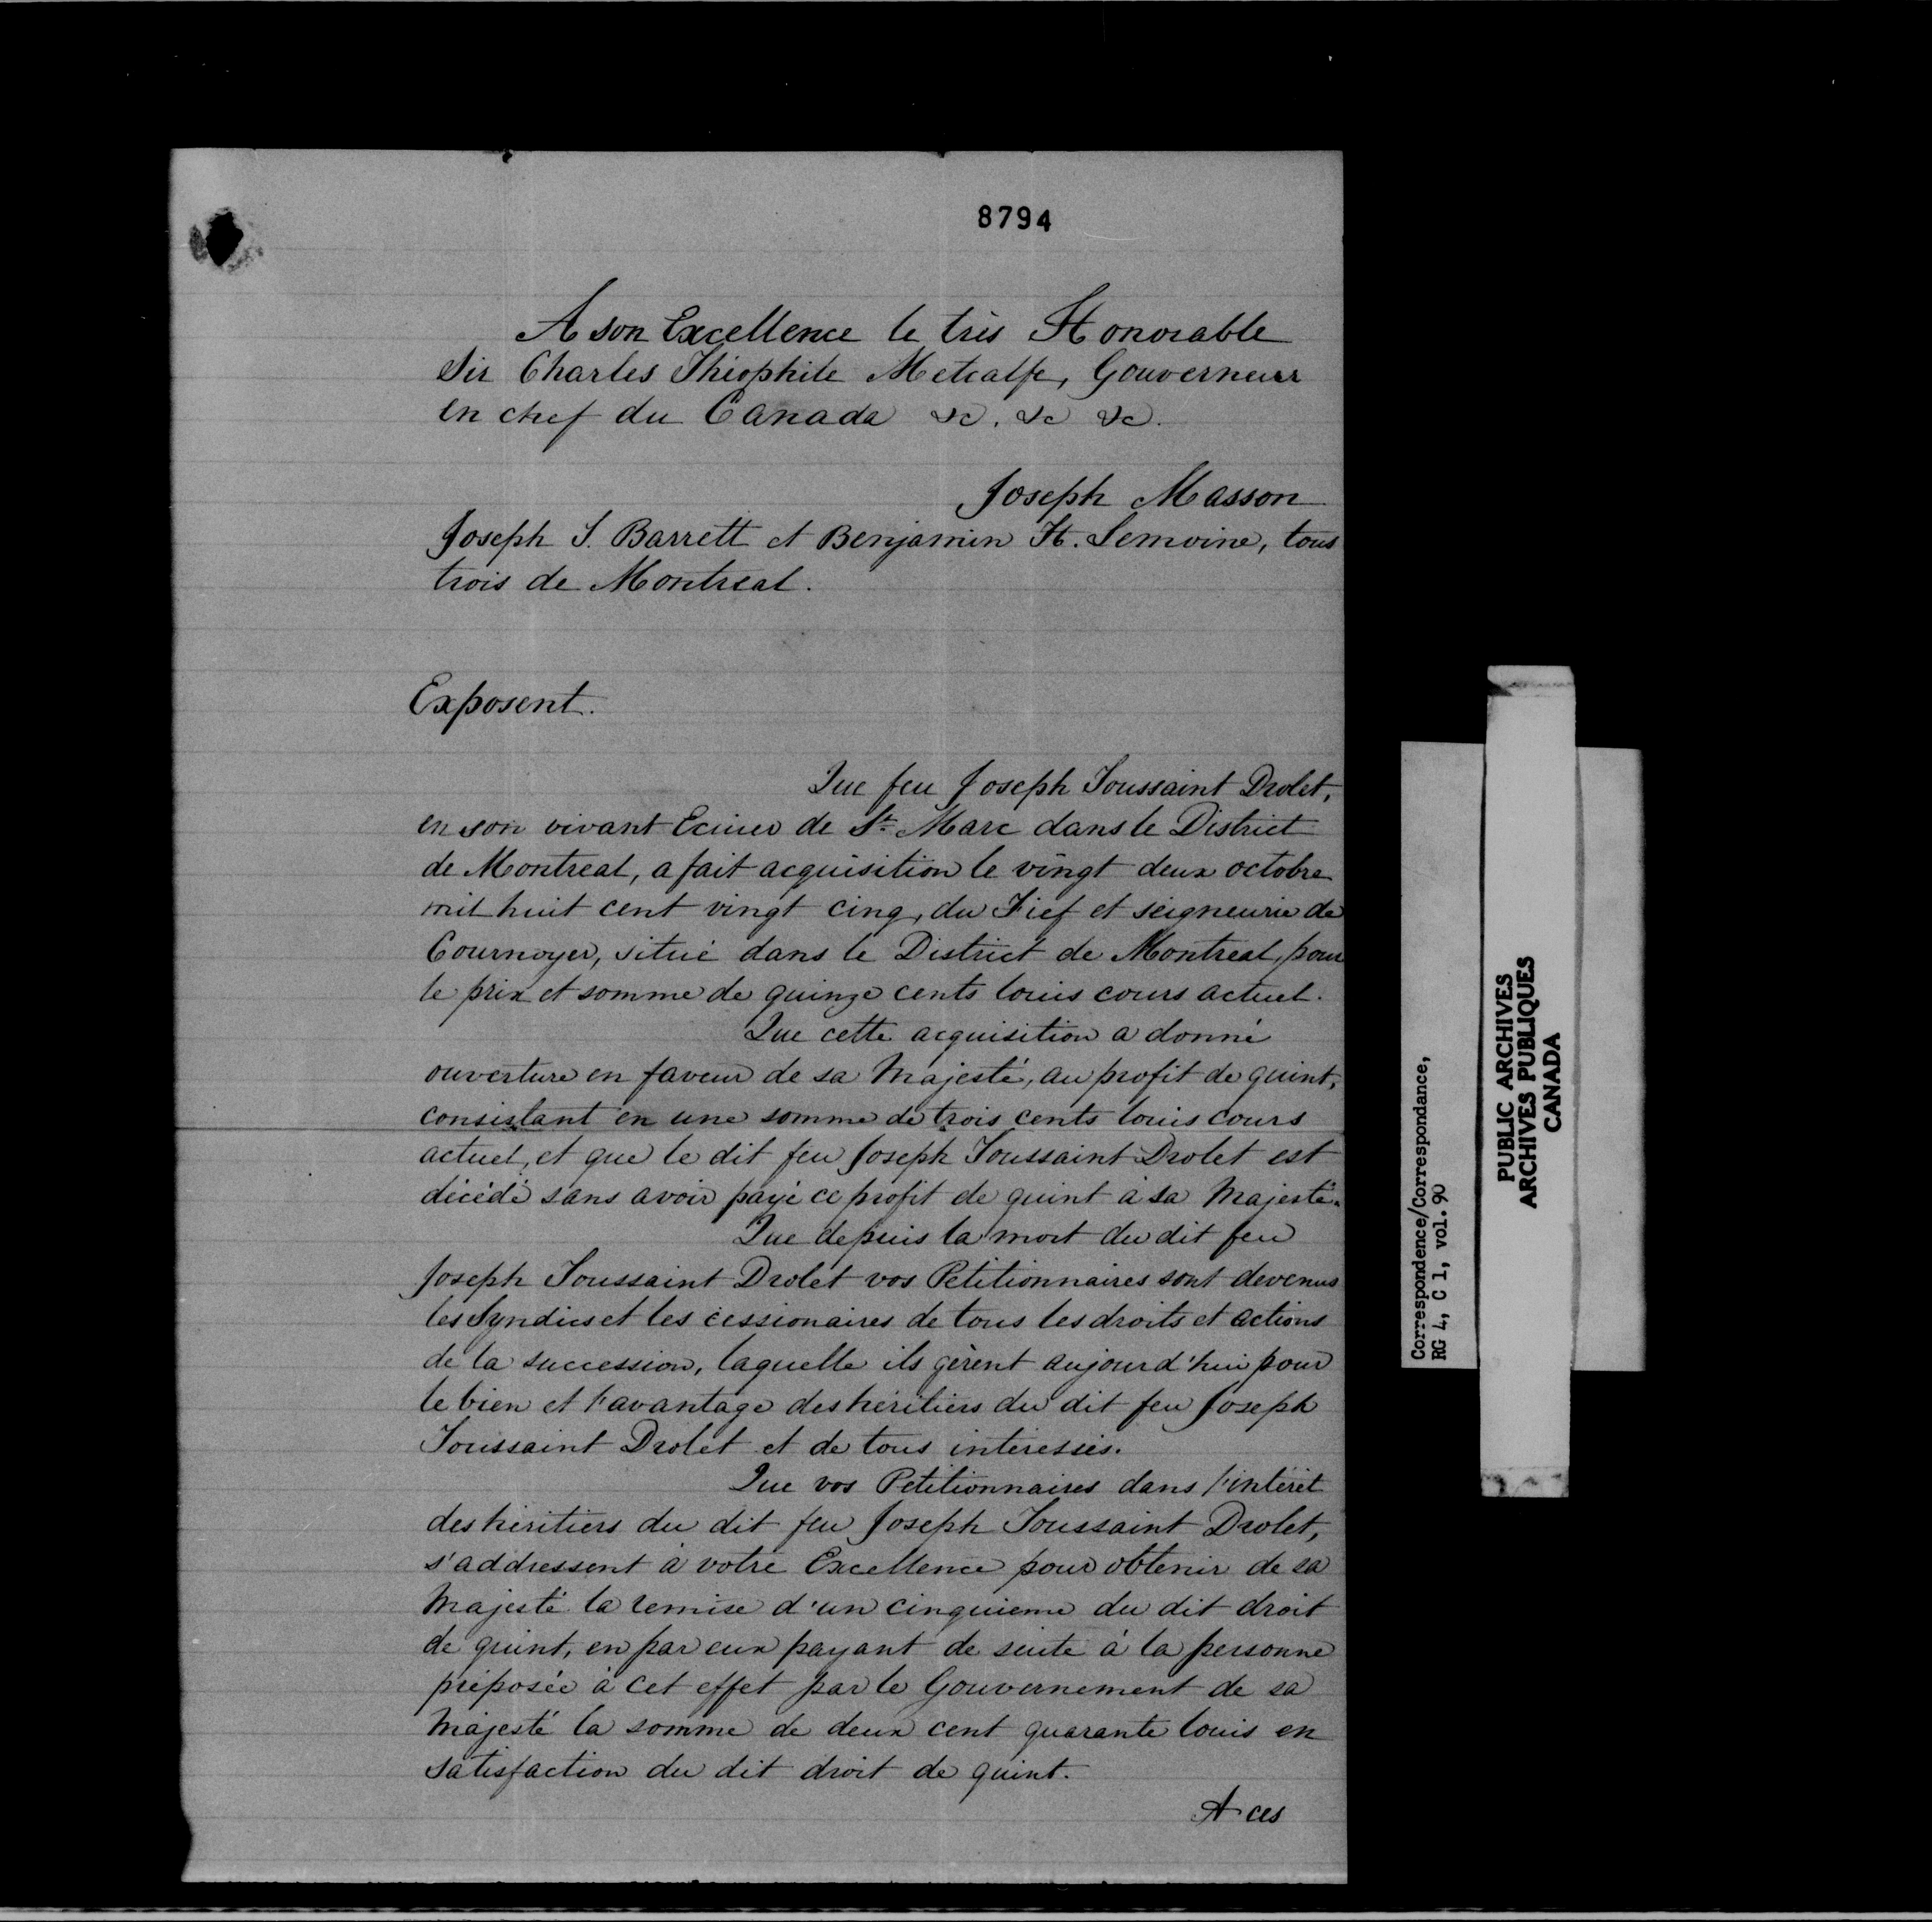 8794
A son Excellence le très Honorable
Sir Charles Théophile Metcalfe, Gouverneur
en chef du Canada &c. &c &c.
Joseph Masson
Joseph T. Barrett et Benjamin H. Lemoine, tous
trois de Montreal.
Exposent.
Que feu Joseph Toussaint Drolet,
en son vivant Ecuier de St. Marc dans le District
de Montreal, a fait acquisition le vingt deux octobre
mil huit cent vingt cinq, du Fief et seigneurie de
Cournoyer, situé dans le District de Montreal, pour
le prix et somme de quinze cents louis cours actuel.
Que cette acquisition a donné
ouverture en faveur de sa Majesté, au profit de quint,
consistant en une somme de trois cents louis cours
actuel, et que le dit feu Joseph Toussaint Drolet est
décédé sans avoir payé ce profit de quint à sa Majesté.
Que depuis la mort du dit feu
Joseph Toussaint Drolet vos Petitionnaires sont devenus
les Syndics et les cessionaires de tous les droits et actions
de la succession, laquelle ils gèrent aujourd'hui pour
le bien et l'avantage des héritiers du dit feu Joseph
Toussaint Drolet et de tous intéressés.
Que vos Petitionnaires dans l'intérèt
des héritiers du dit feu Joseph Toussaint Drolet,
s'addressent à votre Excellence pour obtenir de sa
Majesté la remise d'un cinquieme du dit droit
de quint, en par eux payant de suite à la personne
préposée à cet effet par le Gouvernement de sa
Majesté la somme de deux cent quarante louis en
satisfaction du dit droit de quint.
A ces
Correspondence/Correspondance,
RG 4, C 1, vol. 90
PUBLIC ARCHIVES
ARCHIVES PUBLIQUES
CANADA